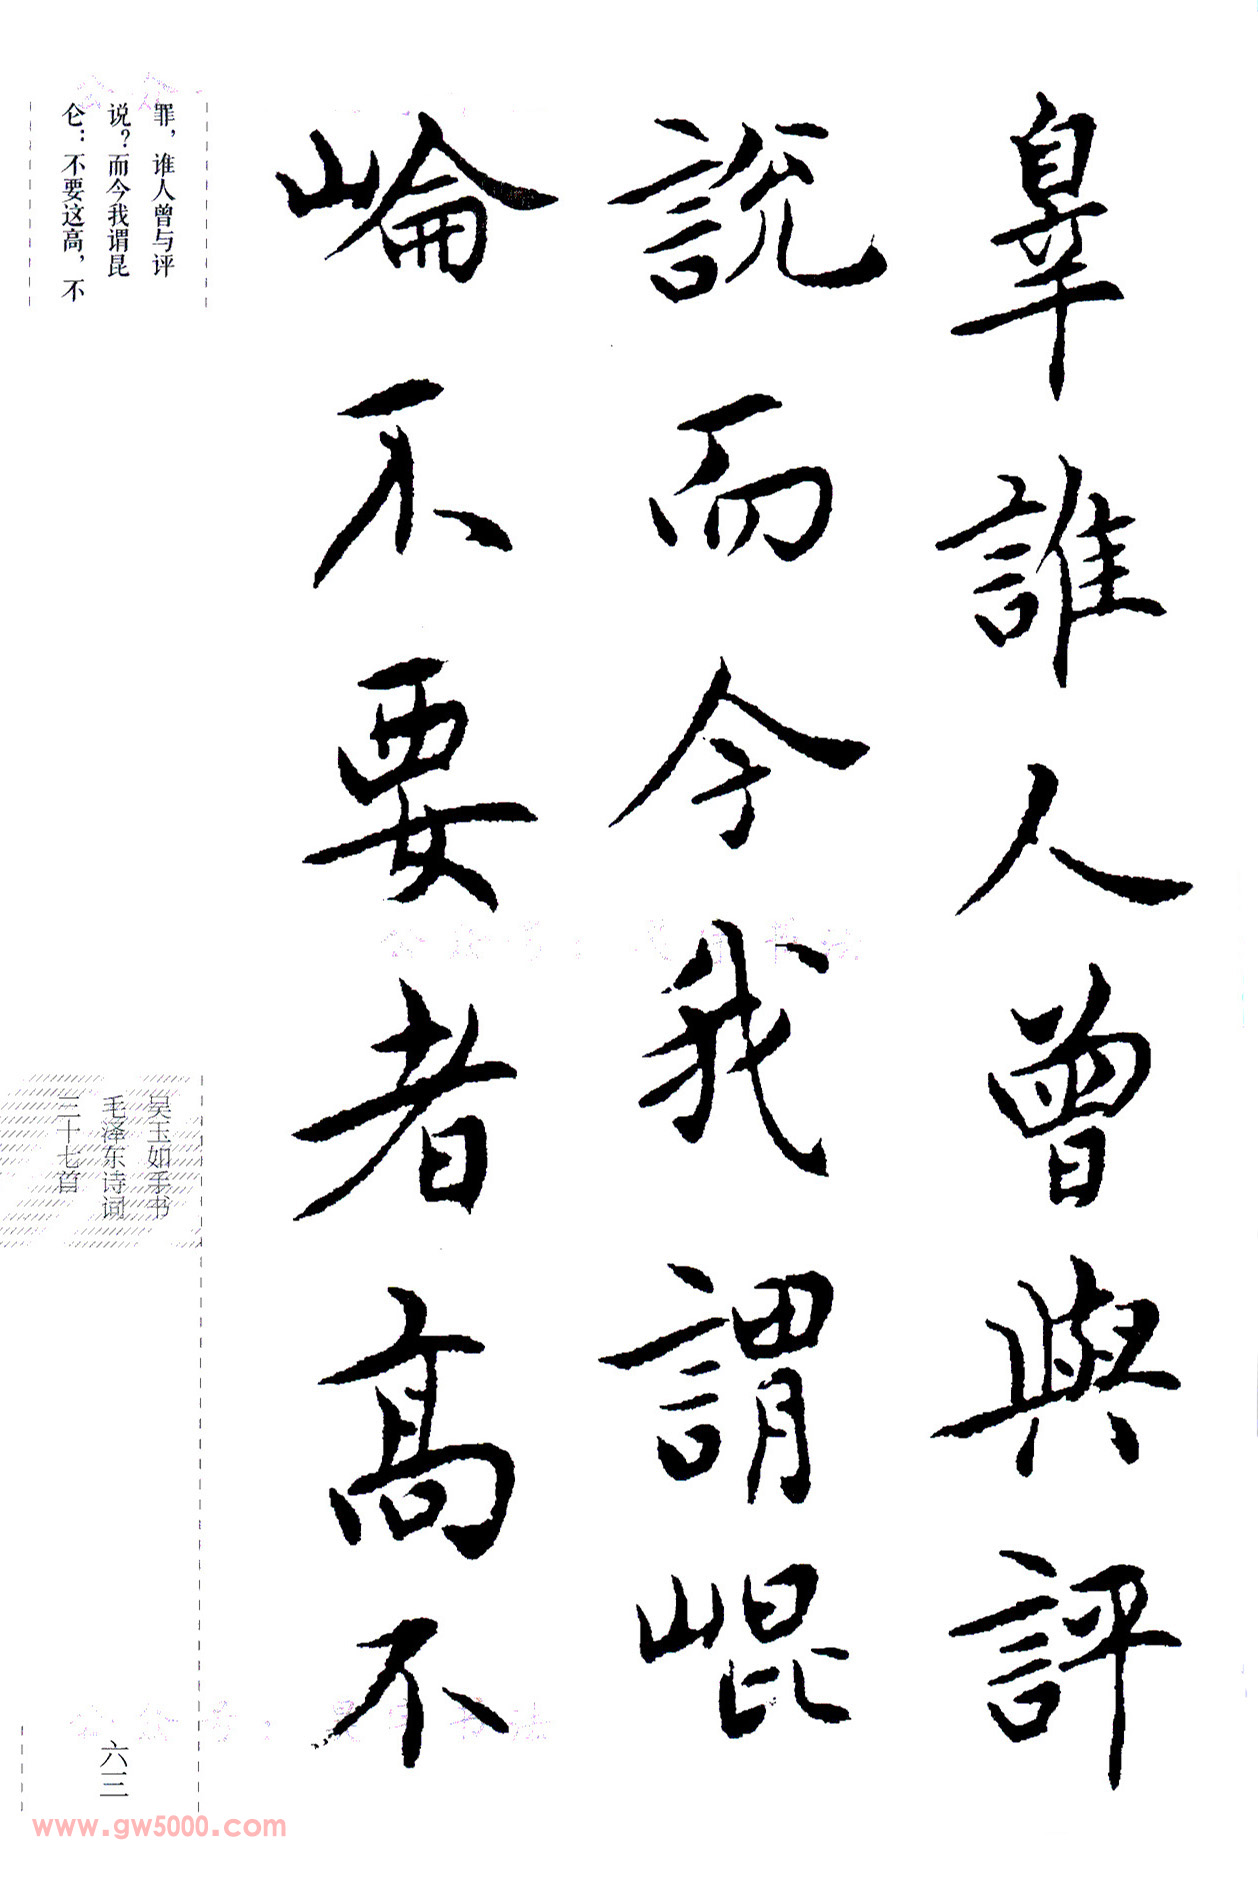 辠誰人曾與評
說而今我謂崐
崘不要者高不
罪，谁人曾与评
说？而今我谓昆
仑：不要这高，不
吴玉如手书
毛泽东诗词
三十七首
六三
www.gw5000.com